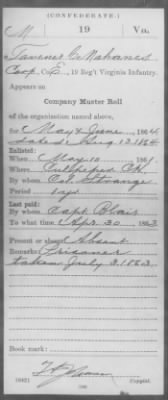 (CONFEDERATE.)
M 19 Va.
Tavener C. Mahanes
Corp, Co. E, 19 Reg't Virginia Infantry.
Appears on
Company Muster Roll
of the organization named above,
for May & June, 1864
dated Aug 12, 1864
Enlisted:
When May 10, 1861
Where Culpeper C.H.
By whom Col. Strange
Period 1 yr
Last paid:
By whom Capt. Blair
To what time Apr. 30, 1863
Present or absent Absent
Remarks: Prisoner
taken July 3, 1863
Book mark:
(642)
Copyist.